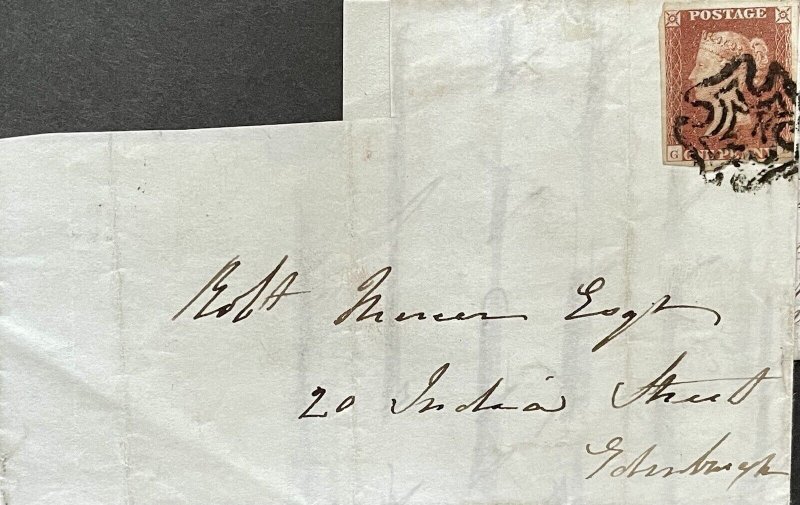 POSTAGE
G
Robt Mercer Esqr
20 India Street
Edinburgh